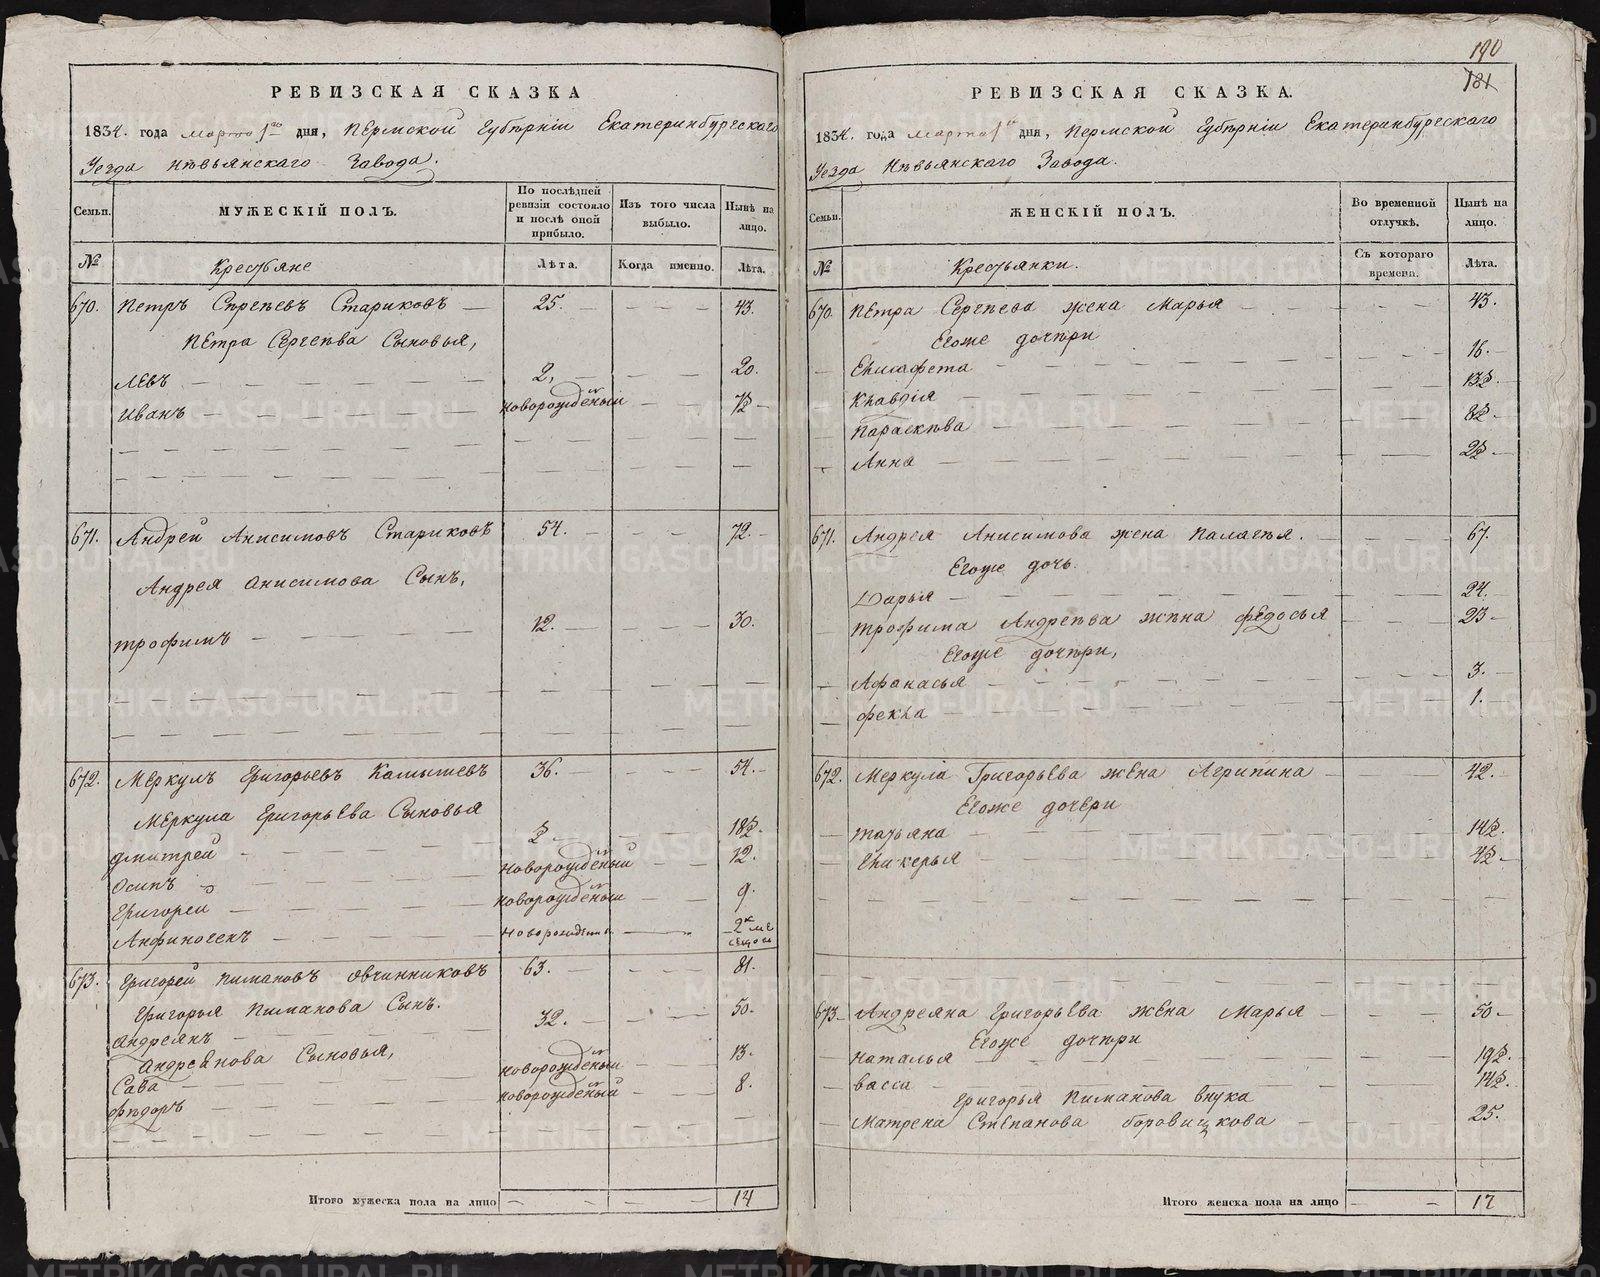 РЕВИЗСКАЯ СКАЗКА
1834. года марта 1го дня, Пермской Губерніи Екатеринбургскаго
Уезда Невьянскаго Завода.
Семьи. МУЖЕСКІЙ ПОЛЪ. По послѣдней ревизіи состояло и послѣ оной прибыло. Изъ того числа выбыло. Нынѣ на лицо.
№ Крестьяне Лѣта. Когда именно. Лѣта.
670. Петръ Сергеевъ Стариковъ — 25. 43.
Петра Сергеева Сыновья,
Левъ 2, 20.
Иванъ новорожденый 7½
671. Андрей Анисимовъ Стариковъ 54. 72.
Андрея Анисимова Сынъ,
трофимъ 12. 30.
672. Меркулъ Григорьевъ Камышевъ 36. 54.
Меркула Григорьева Сыновья
дмитрей ½ 18½.
Осипъ новорожденый 12.
Григорей новорожденый 9.
Анфиногенъ Новорожденый 2х месецовъ
673. Григорей Пимановъ Овчинниковъ 63. 81.
Григорья Пиманова Сынъ.
Андреянъ 32. 50.
Андреянова Сыновья,
Сава новорожденый 13.
Федоръ новорожденый 8.
Итого мужеска пола на лицо 14
190
181
РЕВИЗСКАЯ СКАЗКА.
1834. года марта 1го дня, Пермской Губерніи Екатеринбургскаго
Уезда Невьянскаго Завода.
Семьи. ЖЕНСКІЙ ПОЛЪ. Во временной отлучкѣ. Нынѣ на лицо.
№ Крестьянки. Съ котораго времена. Лѣта.
670. Петра Сергеева жена Марья 43.
Егоже дочери
Елисафета 16.
Клавдія 13½.
Параскева 8½
Анна 2½
671. Андрея Анисимова жена Палагея. 67.
Егоже дочь.
Дарья 24.
трофима Андреева жена федосья 23
Егоже дочери,
Афанасья 3.
фекла 1.
672. Меркула Григорьева жена Агрипина 42.
Егоже дочери
татьяна 14½.
Гликерья 4½.
673 Андреяна Григорьева жена Марья 50
Егоже дочери
Наталья 19½.
васса 14½.
Григорья Пиманова внука
Матрена Степанова 25.
Итого женска пола на лицо 17
METRIKI.GASO-URAL.RU